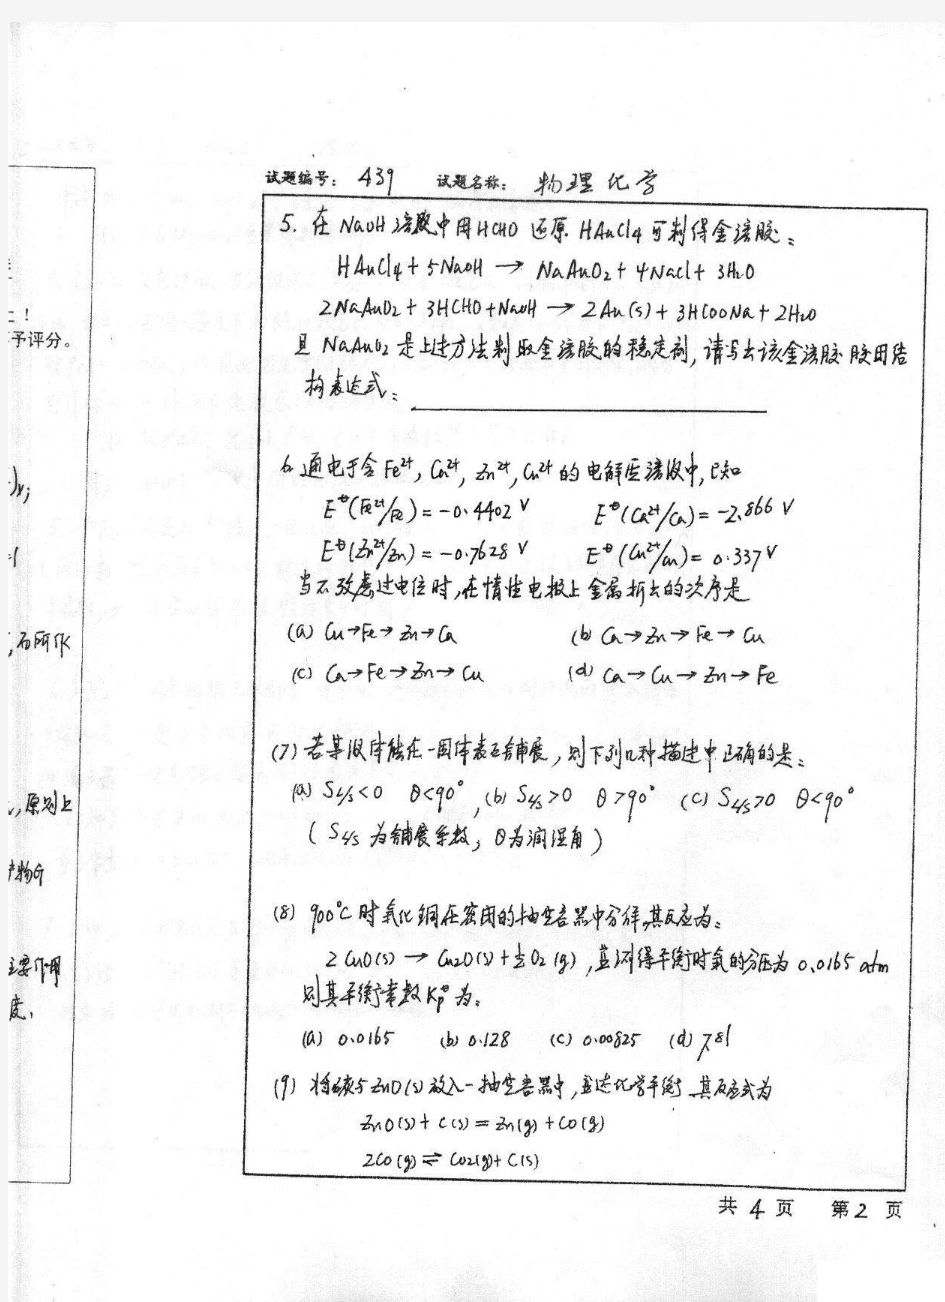 试题编号: 439 试题名称: 物理化学
5. 在 NaOH 溶液中用 HCHO 还原 HAuCl4 可制得金溶胶:
HAuCl4 + 5NaOH → NaAuO2 + 4NaCl + 3H2O
2NaAuO2 + 3HCHO + NaOH → 2Au(s) + 3HCOONa + 2H2O
且 NaAuO2 是上述方法制取金溶胶的稳定剂, 请写出该金溶胶胶团结
构表达式:
6. 通电于含 Fe2+, Ca2+, Zn2+, Cu2+ 的电解质溶液中, 已知
E⊖(Fe2+/Fe) = -0.4402 V E⊖(Ca2+/Ca) = -2.866 V
E⊖(Zn2+/Zn) = -0.7628 V E⊖(Cu2+/Cu) = 0.337 V
当不考虑过电位时, 在惰性电极上金属析出的次序是
(a) Cu→Fe→Zn→Ca (b) Ca→Zn→Fe→Cu
(c) Ca→Fe→Zn→Cu (d) Ca→Cu→Zn→Fe
(7) 若某液体能在一固体表面铺展, 则下列几种描述中正确的是:
(a) SL/S<0 θ<90° (b) SL/S>0 θ>90° (c) SL/S>0 θ<90°
( SL/S 为铺展系数, θ为润湿角 )
(8) 900℃ 时氧化铜在密闭的抽空容器中分解, 其反应为:
2CuO(s) → Cu2O(s) + ½O2(g), 且测得平衡时氧的分压为 0.0165 atm
则其平衡常数 Kp⊖ 为:
(a) 0.0165 (b) 0.128 (c) 0.00825 (d) 7.81
(9) 将碳与 ZnO(s) 放入一抽空容器中, 且达化学平衡, 其反应式为
ZnO(s) + C(s) = Zn(g) + CO(g)
2CO(g) ⇌ CO2(g) + C(s)
共 4 页 第 2 页
予评分。